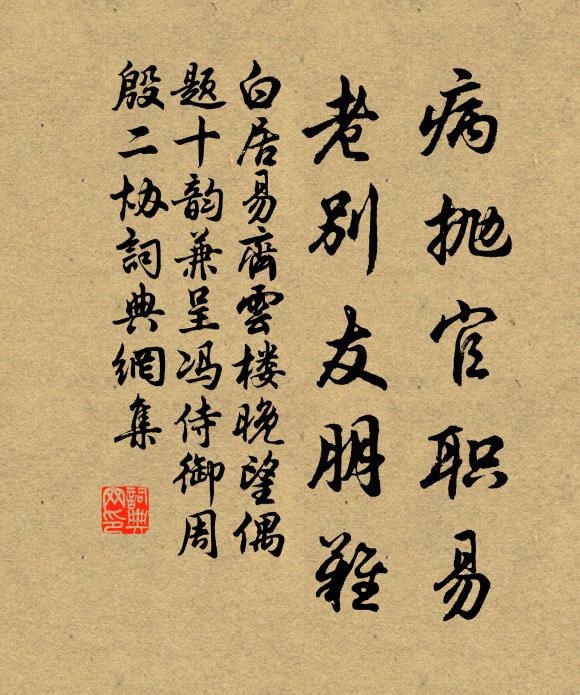 病抛官职易
老别友朋难
白居易齊雲楼晚望偶
题十韵兼呈冯侍御周
殷二协詞典網集
詞典
网印